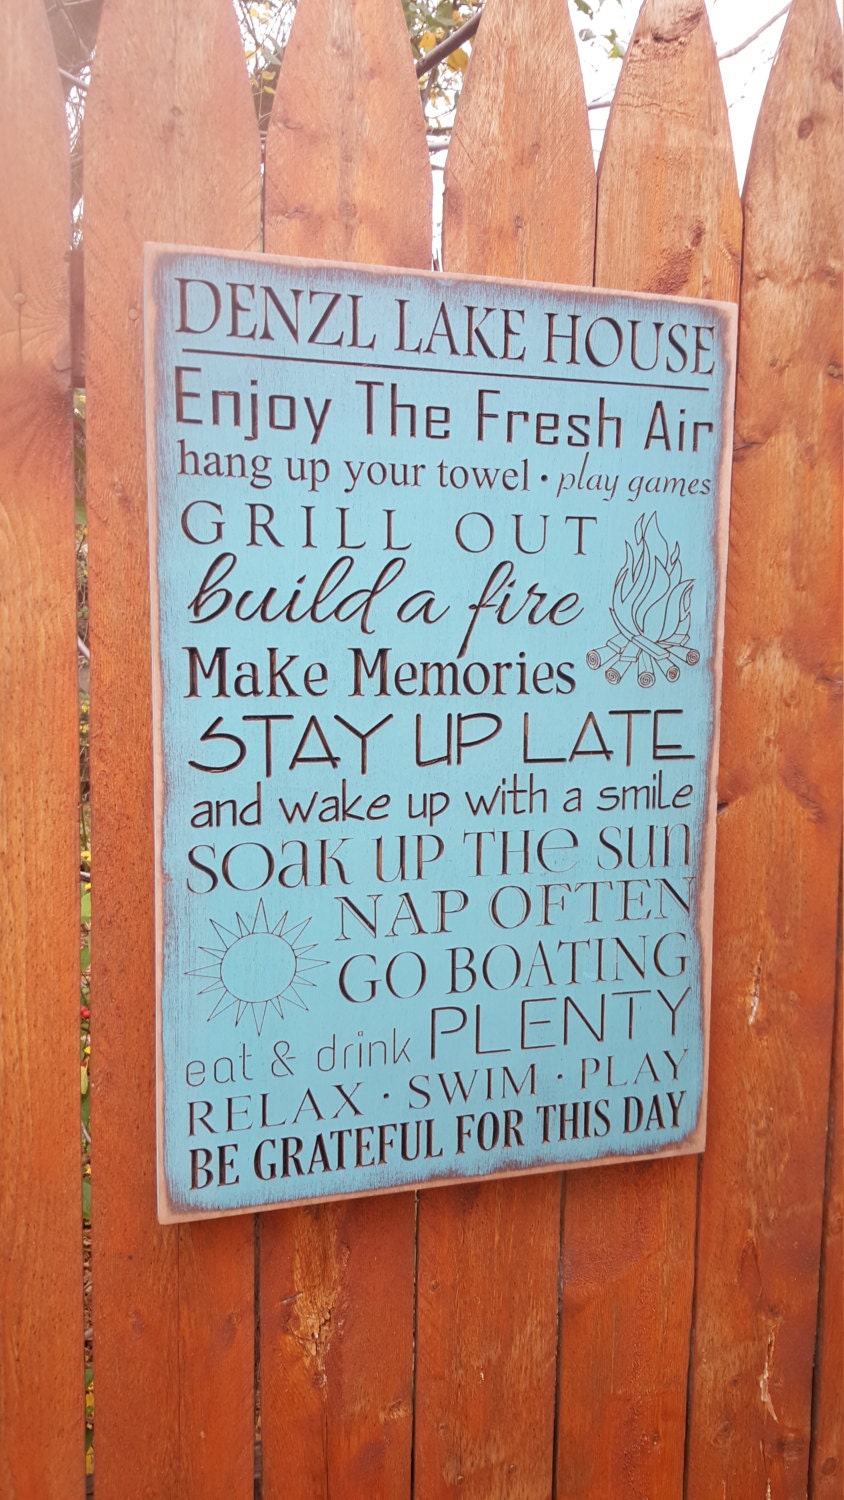 DENZL LAKE HOUSE
Enjoy The Fresh Air
hang up your towel • play games
GRILL OUT
build a fire
Make Memories
STAY UP LATE
and wake up with a smile
SOAK UP THE SUN
NAP OFTEN
GO BOATING
eat & drink PLENTY
RELAX • SWIM • PLAY
BE GRATEFUL FOR THIS DAY